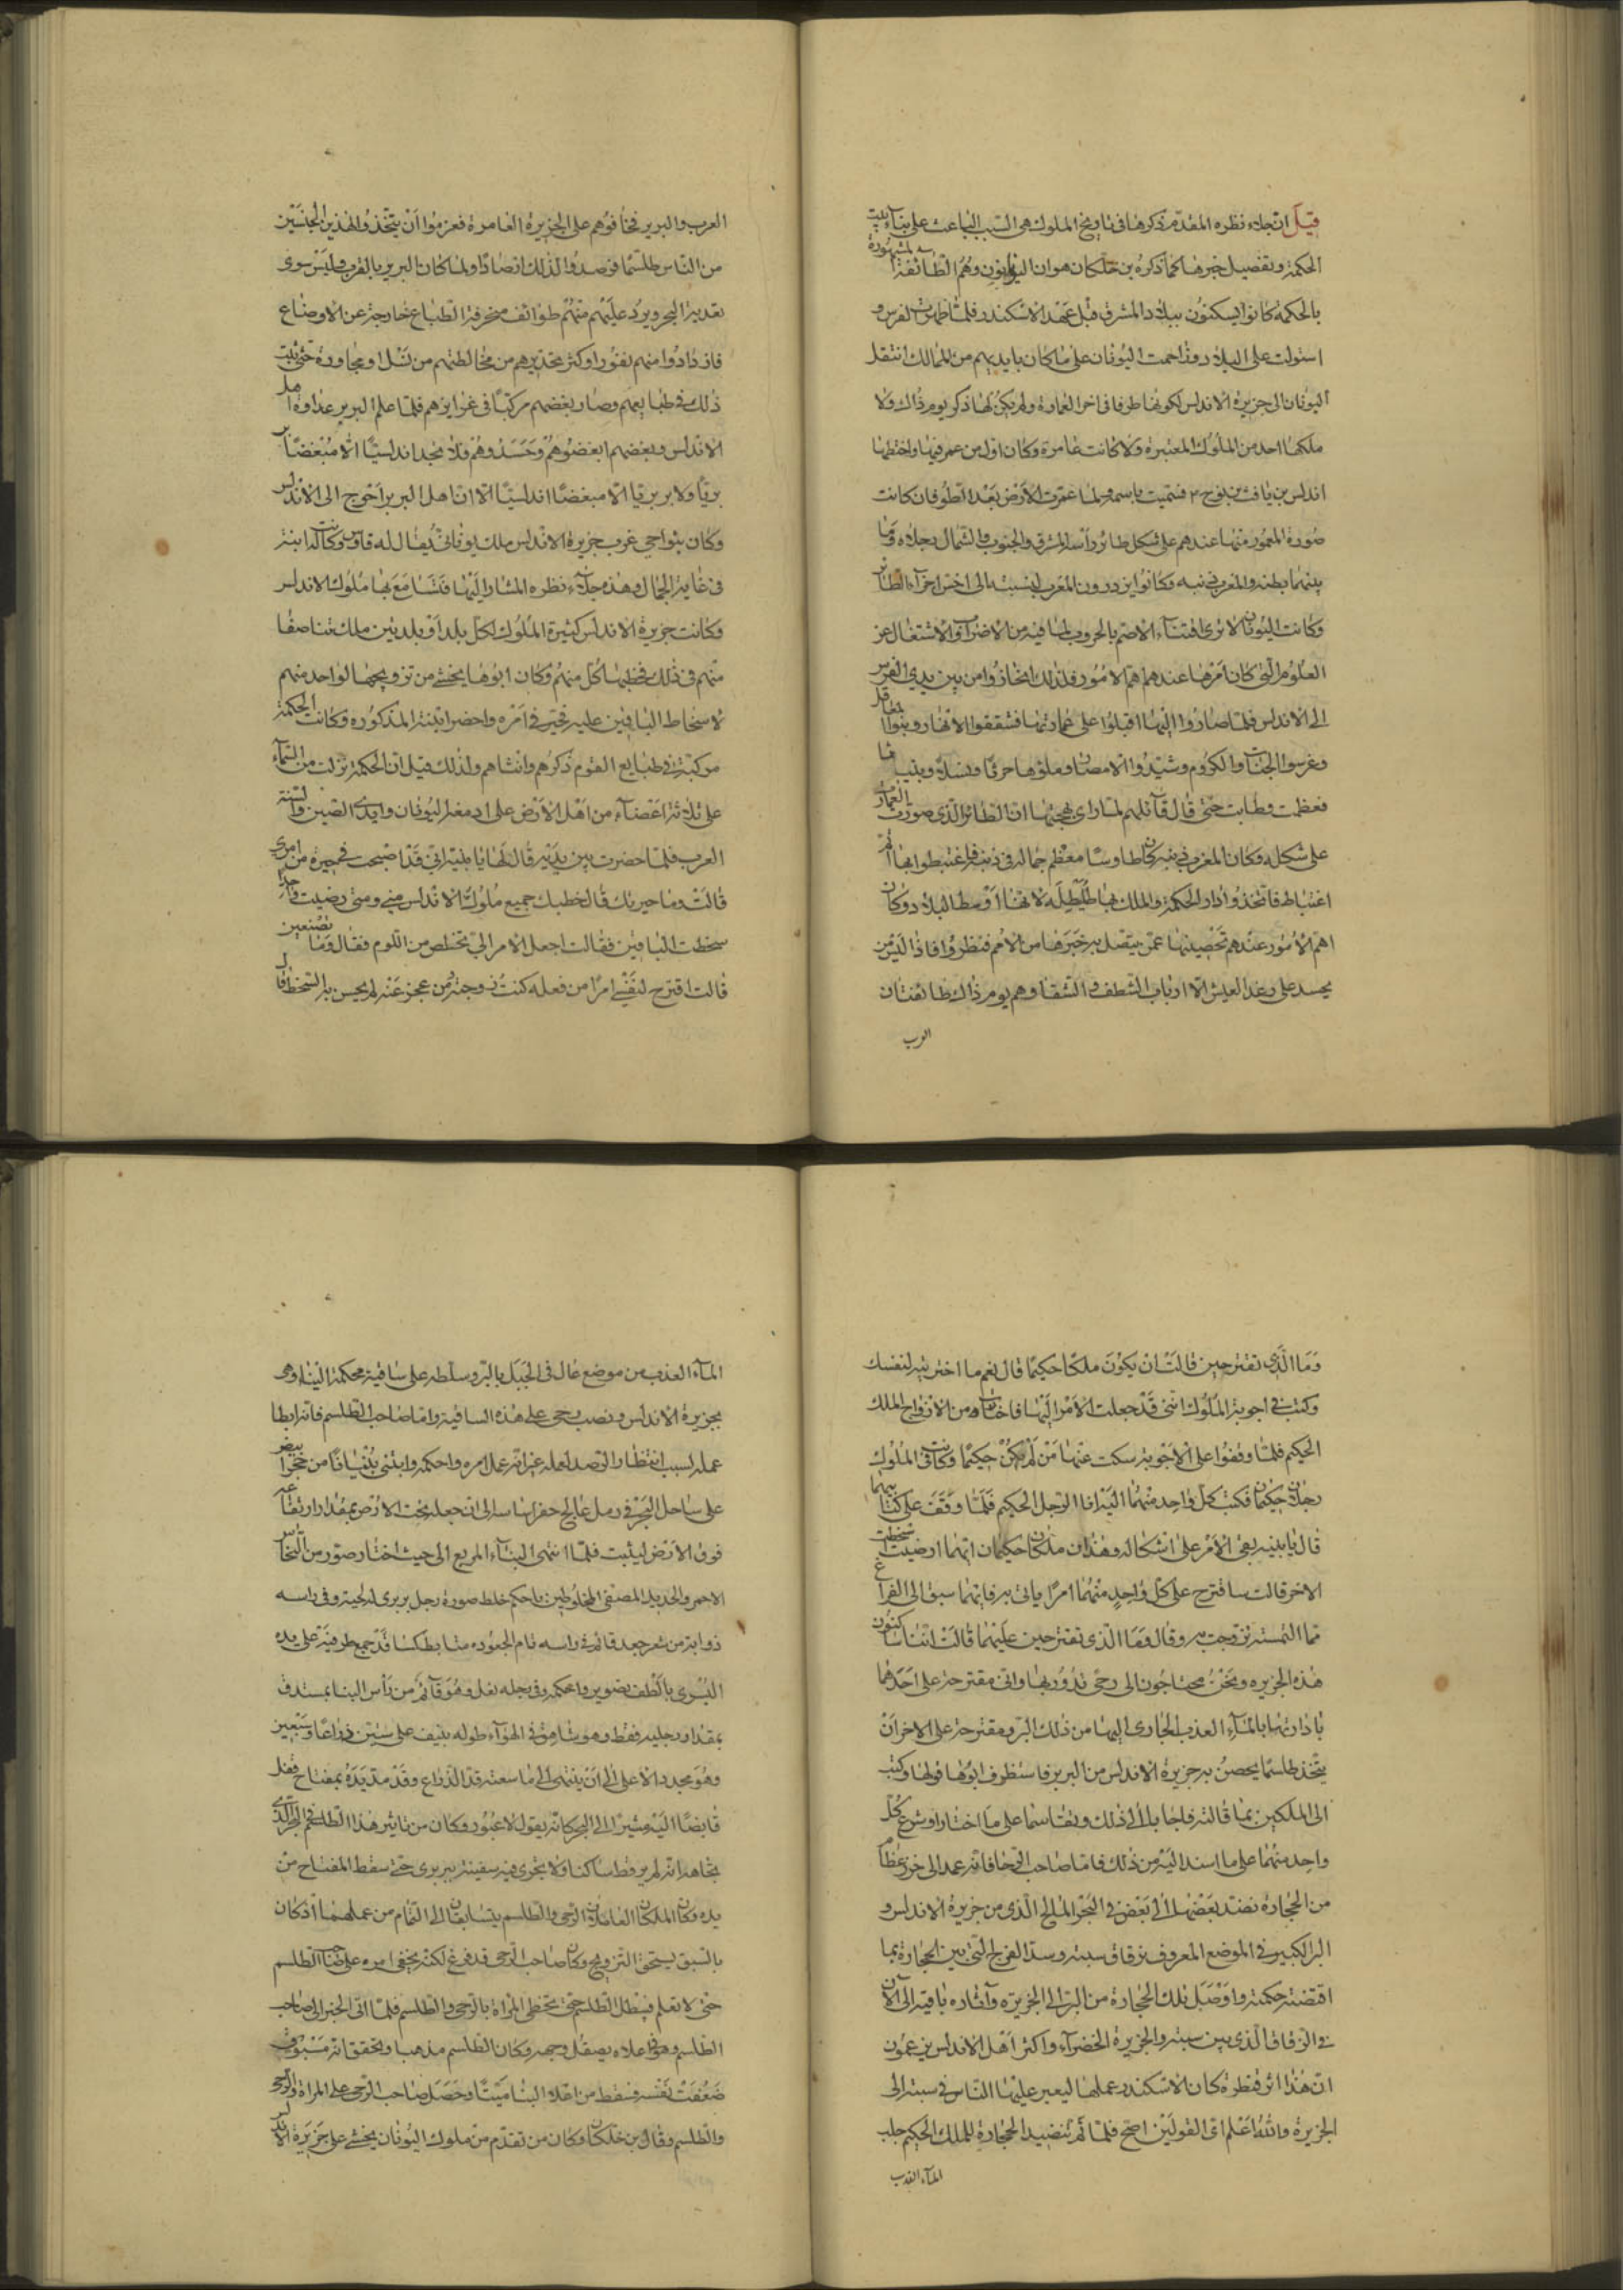 قيل ان جلاء نظره المقدم ذكرها فى تاريخ الملوك هى السبب الباعث على بناء بيت
الحكمة وتفصيل خبرها كما ذكره بن خلكان هو ان اليونانيون وهم الطائفة المشهورة
بالحكمة كانوا يسكنون ببلاد المشرق قبل عهد الاسكندر فلما ظهرت الفرس و
استولت على البلاد وزاحمت اليونان على ما كان بايديهم من الممالك انتقل
اليونان الى جزيرة الاندلس لكونها طرفا فى اخر العمارة ولم يكن لها ذكر يوم ذاك ولا
ملكها احد من الملوك المعتبرة ولا كانت عامرة وكان اول من عمر فيها واختطها
اندلس بن يافث بن نوح ٢ فسميت باسمه ولما عمرت الارض بعد الطوفان كانت
صورة المعمور منها عندهم على شكل طائر رأسه المشرق والجنوب والشمال رجلاه وما
بينهما بطنه والمغرب ذنبه وكانوا يزدرون المغرب لنسبته الى اخس اجزاء الطائر
وكانت اليونان لا ترى افناء الامم بالحروب لما فيه من الاضرار والاشتغال عن
العلوم التى كان امرها عندهم اهم الامور فلذلك انحازوا من بين يدى الفرس
الى الاندلس فلما صاروا اليها اقبلوا على عمارتها فشققوا الانهار وبنوا المعاقل
وغرسوا الجنات والكروم وشيدوا الامصار وملؤها حرثا ونسلا وبنيانا
فعظمت وطابت حتى قال قائلهم لما راى بهجتها ان الطائر الذى صورت العمارة
على شكله وكان المغرب ذنبه كان طاوسا معظم جماله فى ذنبه فاغتبطوا بها اتم
اغتباط فاتخذوا دار الحكمة والملك بها طليطلة لانها اوسط البلاد وكان
اهم الامور عندهم تحصينها عمن يتصل به خبرها من الامم فنظروا فاذا ليس من
يحسد على رغد العيش الا ارباب الشظف والشقا وهم يوم ذاك طائفتان
العرب
العرب والبربر فخافوهم على الجزيرة العامرة فعزموا ان يتخذوا لهذين الجنسين
من الناس طلسما فرصدوا لذلك ارصادا ولما كان البربر بالقرب وليس سوى
تعدية البحر ويرد عليهم منهم طوائف منحرفة الطباع خارجة عن الاوضاع
فازدادوا منهم نفورا وكثر تحذيرهم من مخالطتهم من نسل او مجاورة حتى ثبت
ذلك فى طبايعهم وصار بغضهم مركبا فى غرايزهم فلما علم البربر عداوة اهل
الاندلس وبغضهم ابغضوهم وحسدوهم فلا تجد اندلسيا الا مبغضا بر
بريا ولا بربريا الا مبغضا اندلسيا الا ان اهل البربر احوج الى الاندلس
وكان بنواحى غرب جزيرة الاندلس ملك يونانى يقال له قاوس وكانت له ابنة
فى غاية الجمال وهذه جلاء نظره المشار اليها فتسامع بها ملوك الاندلس
وكانت جزيرة الاندلس كثيرة الملوك لكل بلد او بلدين ملك تناصفا
منهم فى ذلك فخطبها كل منهم وكان ابوها يخشى من تزويجها لواحد منهم
لاسخاط الباقين عليه تحير فى امره واحضر ابنته المذكورة وكانت الحكمة
مركبة فى طبايع القوم ذكرهم وانثاهم ولذلك قيل ان الحكمة نزلت من السماء
على ثلاثة اعضاء من اهل الارض على ادمغة اليونان وايدى الصين والسنة
العرب فلما حضرت بين يديه قال لها يا بنيه انى قد اصبحت فى حيرة من امرى
قالت وما حيرتك قال خطبك جميع ملوك الاندلس منى ومتى رضيت واحدا
سخطت الباقين فقالت اجعل الامر الى تخلص من اللوم فقال وما تصنعين
قالت اقترح لنفسى امرا من فعله كنت زوجته ومن عجز عنه لم يحسن به السخط قال
وما الذى تقترحين قالت ان يكون ملكا حكيما قال نعم ما اخترتيه لنفسك
وكتب فى اجوبة الملوك اننى قد جعلت الامر اليها فاختارت من الازواج الملك
الحكيم فلما وقفوا على الاجوبة سكت عنها من لم يكن حكيما وكانت فى الملوك
رجلان حكيمان فكتب كل واحد منهما اليه انا الرجل الحكيم فلما وقف على كتابيهما
قال يا بنيه بقى الامر على اشكاله وهذان ملكان حكيمان ايهما ارضيت سخطت
الاخر قالت ساقترح على كل واحد منهما امرا ياتى به فايهما سبق الى الفراغ
مما التمسته تزوجت به وقال وما الذى تقترحين عليهما قالت اننا ساكنون
هذه الجزيره ونحن محتاجون الى رحى ندور بها وانى مقترحة على احدهما
بادارتها بالماء العذب الجارى اليها من ذلك البر ومقترحة على الاخر ان
يتخذ طلسما يحصن به جزيرة الاندلس من البربر فاستظرف ابوها قولها وكتب
الى الملكين بما قالته فاجابا الى ذلك وتقاسما على ما اختارا وشرع كل
واحد منهما على ما اسند اليه من ذلك فاما صاحب الرحا فانه عمد الى خرز عظام
من الحجارة نضد بعضها الى بعض فى البحر المالح الذى من جزيرة الاندلس و
البر الكبير فى الموضع المعروف بزقاق سبته وسد الفرج التى بين الحجارة بما
اقتضته حكمته واوصل تلك الحجارة من البر الى الجزيره وآثاره باقية الى الآن
فى الزقاق الذى بين سبته والجزيرة الخضراء واكثر اهل الاندلس يزعمون
ان هذا اثر قنطرة كان الاسكندر عملها ليعبر عليها الناس فى سبته الى
الجزيرة والله اعلم اى القولين اصح فلما تم تنضيد الحجارة للملك الحكيم جلب
الماء العذب
الماء العذب من موضع عال فى الجبل بالبر وسلطه على ساقية محكمة البناء وهى
بجزيرة الاندلس ونصب رحى على هذه الساقية واما صاحب الطلسم فانه ابطا
عمله لسبب انتظار الرصد لعله غير انه عمل امره واحكمه وابتنى بنيانا من حجر ابيض
على ساحل البحر فى رمل عالج حفر اساسه الى ان جعله تحت الارض بمقدار ارتفاعه
فوق الارض ليثبت فلما انتهى البناء المربع الى حيث اختار صور من النحاس
الاحمر والحديد المصفى المخلوطين باحكم خلط صورة رجل بربرى له لحية وفى راسه
ذوابة من شعر جعد قائمة فى راسه تام الجعوده متابط كسا قد جمع طرفيه على يده
اليسرى بالطف تصوير واحكمه وفى رجله نعل وهو قائم من رأس البنا بمستدق
بمقدار رجليه فقط وهو شاهق فى الهواء طوله ينيف على ستين ذراعا وسبعين
وهو محدد الاعلى الى ان ينتهى الى ما سعته قد الذراع وقد مد يده بمفتاح قفل
قابضا اليه مشيرا الى البحر كانه يقول لا عبور وكان من تاثير هذا الطلسم فى البحر الذى
تجاهه انه لم ير قط ساكنا ولا يجرى فيه سفينة بربرى حتى سقط المفتاح من
يده وكان الملكان العاملان الرحى والطلسم يتسابقان الى التمام من عملهما اذ كان
بالسبق يستحق التزويج وكان صاحب الرحى قد فرغ لكنه يخفى امره على صاحب الطلسم
حتى لا يعلم فيبطل الطلسم حتى تحظى المراة بالرحى والطلسم فلما اتى الخبر الى صاحب
الطلسم وهو فى علاه يصقل وجهه وكان الطلسم مذهبا وتحقق انه مسبوق
ضعفت نفسه فسقط من اعلا البنا ميتا وحصل صاحب الرحى على المراة والرحى
والطلسم وقال بن خلكان وكان من تقدم من ملوك اليونان يخشى على جزيرة الاندلس